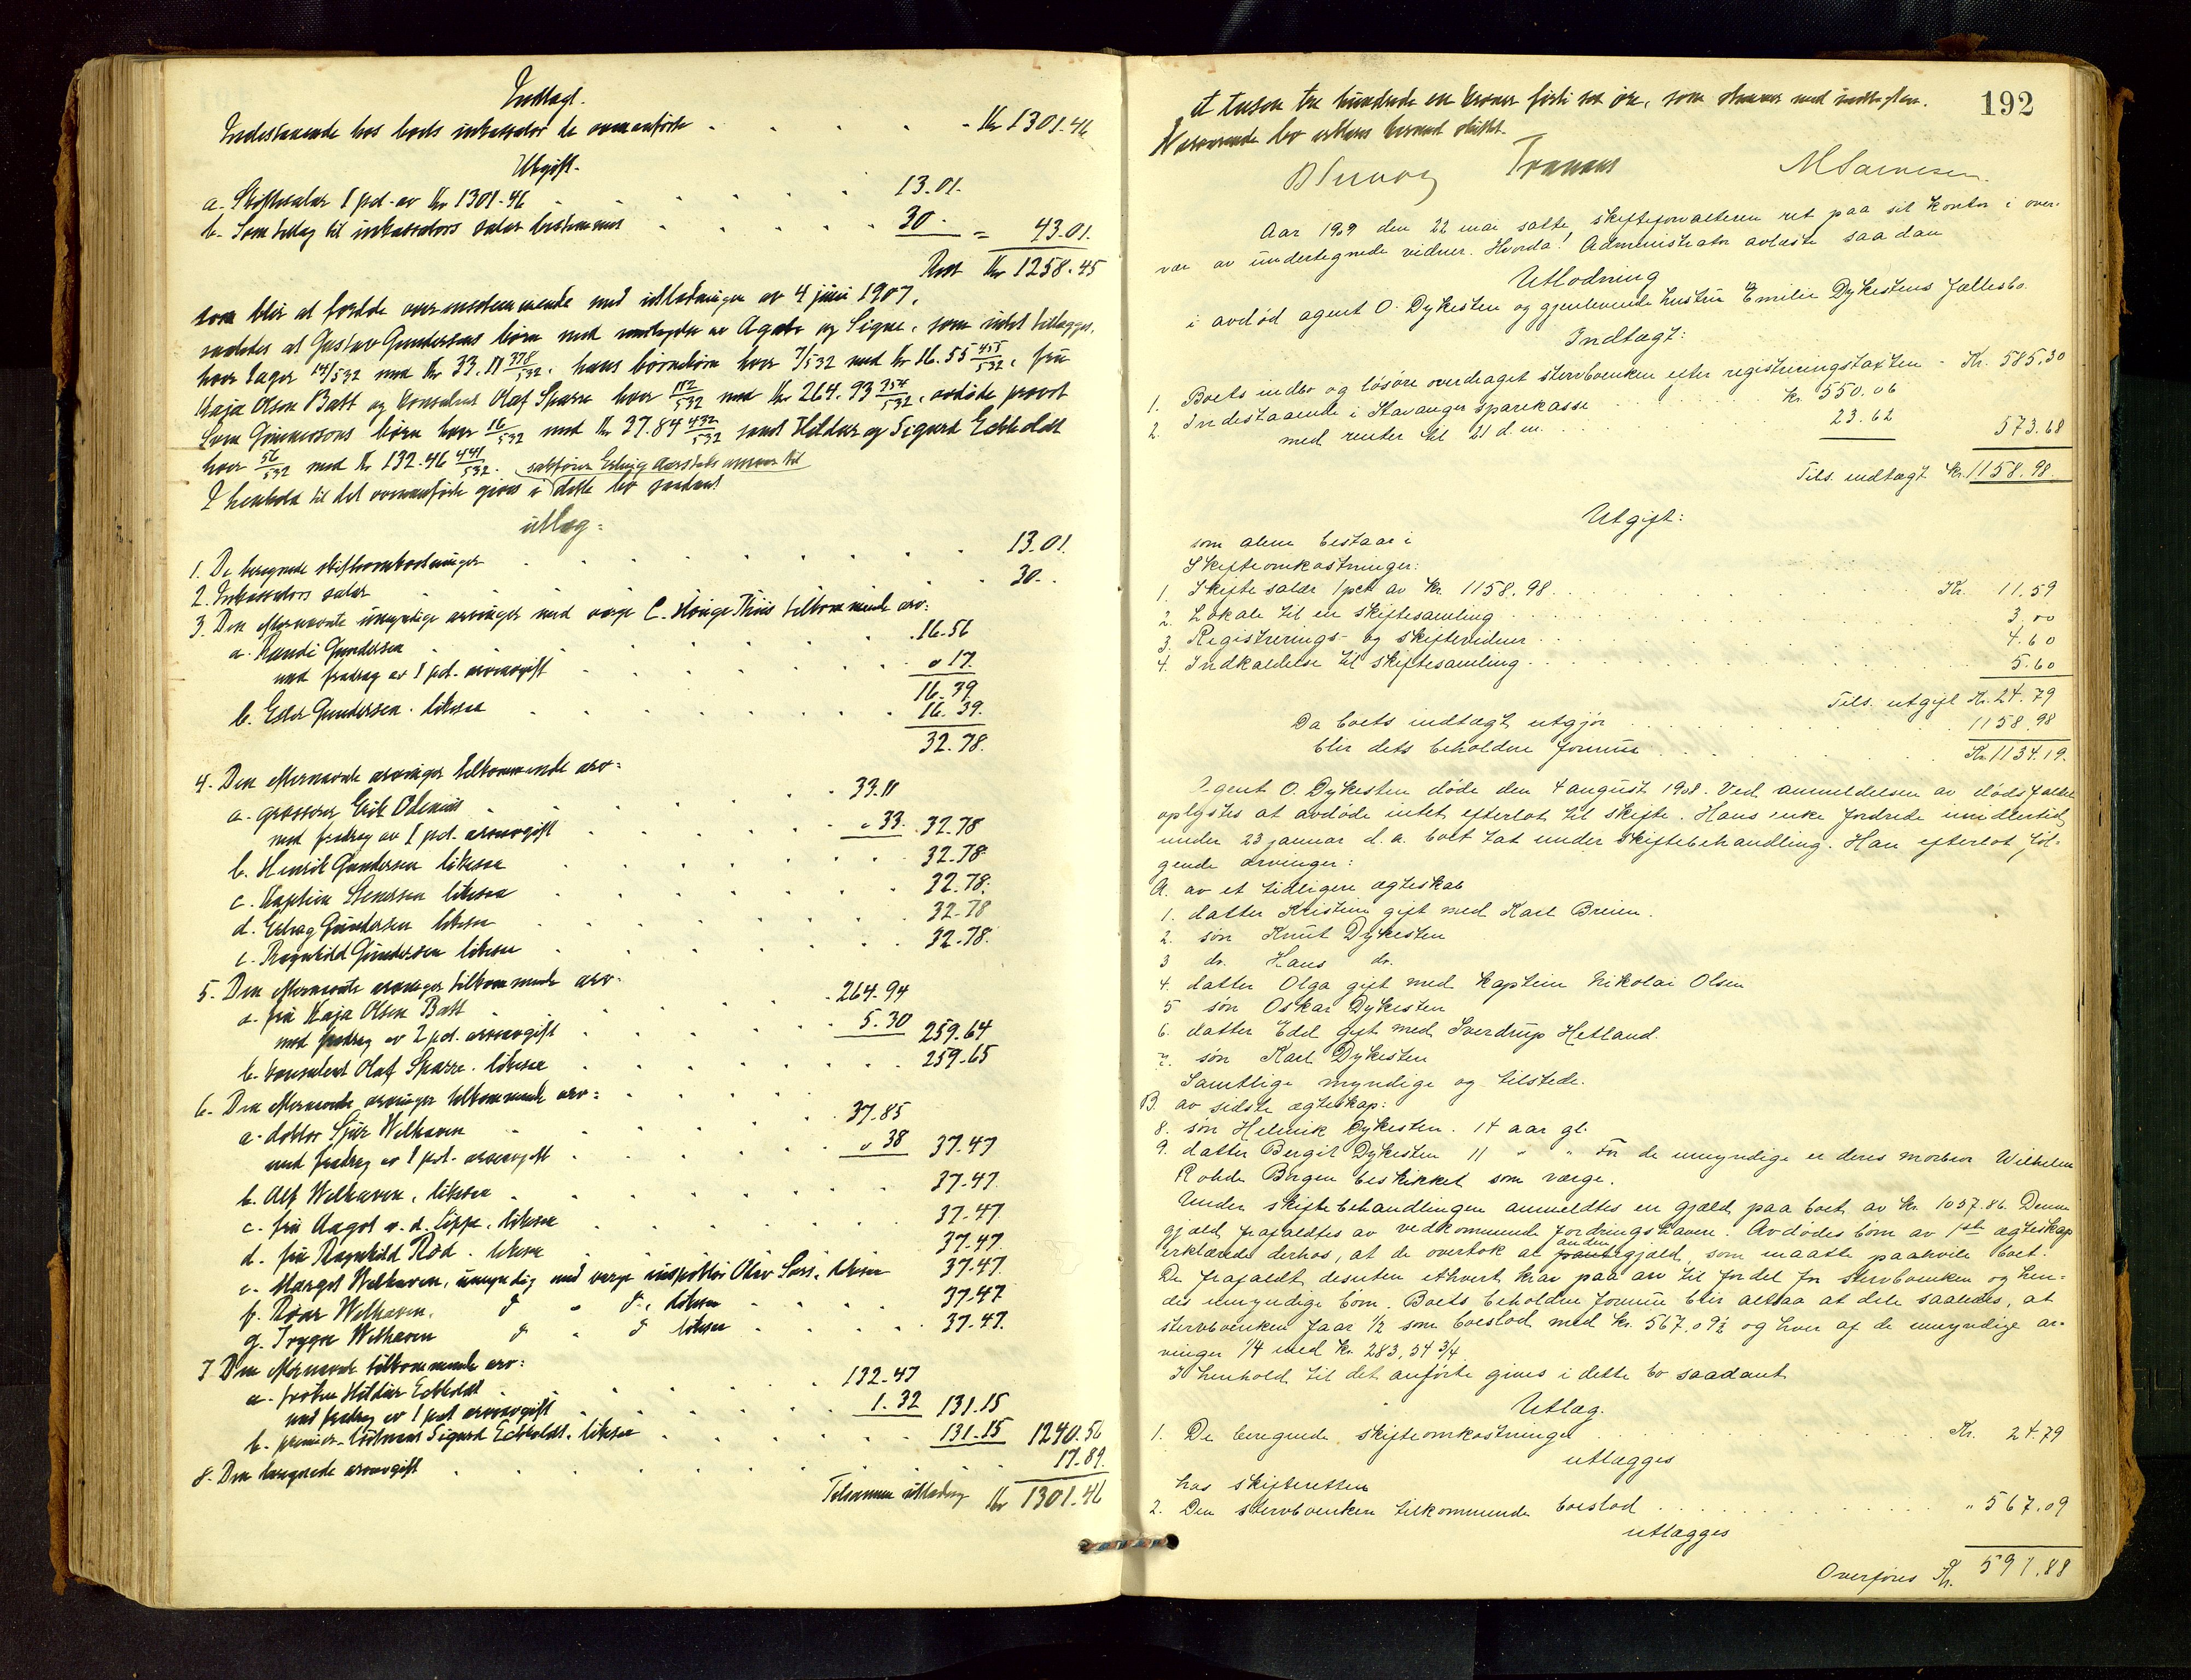 Indtægt.
Indestaaende hos boets inkassator de ovenanførte - Kr 1301.46
Utgift.
a. Skiftesalær 1 pct. av Kr 1301.46 13.01.
b. Som tillæg til inkassators salær bestemmes 30.- = 43.01.
Rest Kr 1258.45
som blir at fordele overensstemmende med utlodningen av 4 juni 1907,
saaledes at Gustav Gundersens børn med undtagelse av Agate og Signe, som intet tillægges,
hver tager 14/532 med Kr 33.11 378/532, hans børnebørn hver 7/532 med Kr 16.55 455/532, fru
Kaja Olsen Batt og konsulent Olaf Sparre hver 112/532 med Kr 264.93 354/532, avdøde provst
Sven Gunnersons børn hver 16/532 med Kr 37.84 432/532 samt Hildur og Sigurd Eckholdt
hver 56/532 med Kr 132.46 441/532.
sakfører Erling Aarstads ansvar til
I henhold til det ovenanførte gives i dette bo saadant
utlæg:
1. De beregnede skifteomkostninger 13.01.
2. Inkassators salær 30.-
3. Den efternævnte umyndige arvinger med verge C. Hauge Thiis tilkommende arv:
a. Randi Gundersen 16.56
med fradrag av 1 pct. arveavgift " 17.
16.39
b. Ester Gundersen. likesaa 16.39.
32.78.
4. Den efternævnte arvinger tilkommende arv:
a. grosserer Erik Odenius 33.11
med fradrag av 1 pct. arveavgift " 33. 32.78
b. Henrik Gundersen likesaa 32.78
c. Kaptein Stenersen likesaa 32.78.
d. Erling Gundersen likesaa 32.78
e. Ragnhild Gundersen likesaa 32.78.
5. Den efternævnte arvinger tilkommende arv.
a. fru Kaja Olsen Batt 264.94
med fradrag av 2 pct. arveavgift 5.30 259.64
b. konsulent Olaf Sparre. likesaa 259.65
6. Den efternævnte arvinger tilkommende arv:
a. doktor Sjur Welhaven 37.85
med fradrag av 1 pct. arveavgift " 38 37.47
b. Alf Welhaven, likesaa 37.47.
c. fru Aagot v. d. Lippe, likesaa 37.47
d. fru Ragnhild Rød. likesaa 37.47.
e. Margot Welhaven, umyndig med verge inspektør Olav Sass. likesaa 37.47.
f. Roar Welhaven, d° " d°, likesaa 37.47
g. Trygve Welhaven d° " d° likesaa 37.47.
7. Den efternævnte tilkommende arv:
a. frøken Hildur Eckholdt 132.47
med fradrag av 1 pct arveavgift 1.32 131.15
b. premier-løitnant Sigurd Eckholdt. likesaa 131.15 1240.56
8. Den beregnede arveavgift 17.89.
Tilsammen utlodning Kr 1301.46
192
et tusen tre hundrede en kroner førti sex øre, som stemmer med indtægten.
Nærværende bo erklæres hermed sluttet.
Aar 1909 den 22 mai satte skifteforvalteren ret paa sit kontor i over-
vær av undertegnede vidner. Hvorda! Administrator avlæste saadan
Utlodning
i avdød agent O. Dykesten og gjenlevende hustru Emilie Dykestens fællesbo.
Indtægt:
1. Boets indbo og løsøre overdraget stervboenken efter registreringstaxten - Kr. 585.30
2. Indestaaende i Stavanger sparekasse Kr. 550.06
med renter til 21 d. m. 23.62 573.68
Tils. indtægt Kr. 1158.98.
Utgift:
som alene bestaar i
Skifteomkostninger:
1. Skifte salær 1 pct av kr. 1158.98. Kr. 11.59
2. Lokale til en skiftesamling 3.00
3. Registrerings- og skiftevidner 4.60
4. Indkaldelse til skiftesamling 5.60
Tils. utgift Kr. 24.79
Da boets indtægt utgjør 1158.98
blir dets beholdne formue Kr. 1134.19.
Agent O. Dykesten døde den 4 august 1908. Ved anmeldelsen av dødsfaldet
oplystes at avdøde intet efterlot til skifte. Hans enke fordrede imidlertid
under 23 januar d. a. boet tat under skiftebehandling. Han efterlot føl-
gende arvinger:
A. av et tidligere ægteskab
1. datter Kristine gift med Karl Breien.
2. søn Knut Dykesten
3 do. Hans do.
4. datter Olga gift med kaptein Nikolai Olsen
5 søn Oskar Dykesten
6. datter Edel gift med Sverdrup Hetland.
7. søn Karl Dykesten
Samtlige myndige og tilstede.
B. av sidste ægteskap:
8. søn Helmik Dykesten. 14 aar gl.
9. datter Bergit Dykesten 11 " " For de umyndige er deres morbror Wilhelm
Rohde Bergen beskikket som værge.
Under skiftebehandlingen anmeldtes en gjæld paa boet av kr. 1057.86. Denne
gjæld frafaldtes av vedkommende fordringshavere. Avdødes børn av 1ste ægteskap
erklærede derhos, at de overtok al anden gjæld, som maatte paahvile boet.
De frafaldt desuten ethvert krav paa arv til fordel for stervboenken og hen-
des umyndige børn. Boets beholdne formue blir altsaa at dele saaledes, at
stervboenken faar 1/2 som boeslod med kr. 567.09 1/2 og hver af de umyndige ar-
vinger 1/4 med kr. 283,54 3/4
I henhold til det anførte gives i dette bo saadant
Utlæg.
1. De beregnede skifteomkostninger Kr. 24.79
utlægges
hos skifteretten
2. Den stervboenken tilkommende boeslod " 567.09
utlægges
Overføres Kr. 591.88